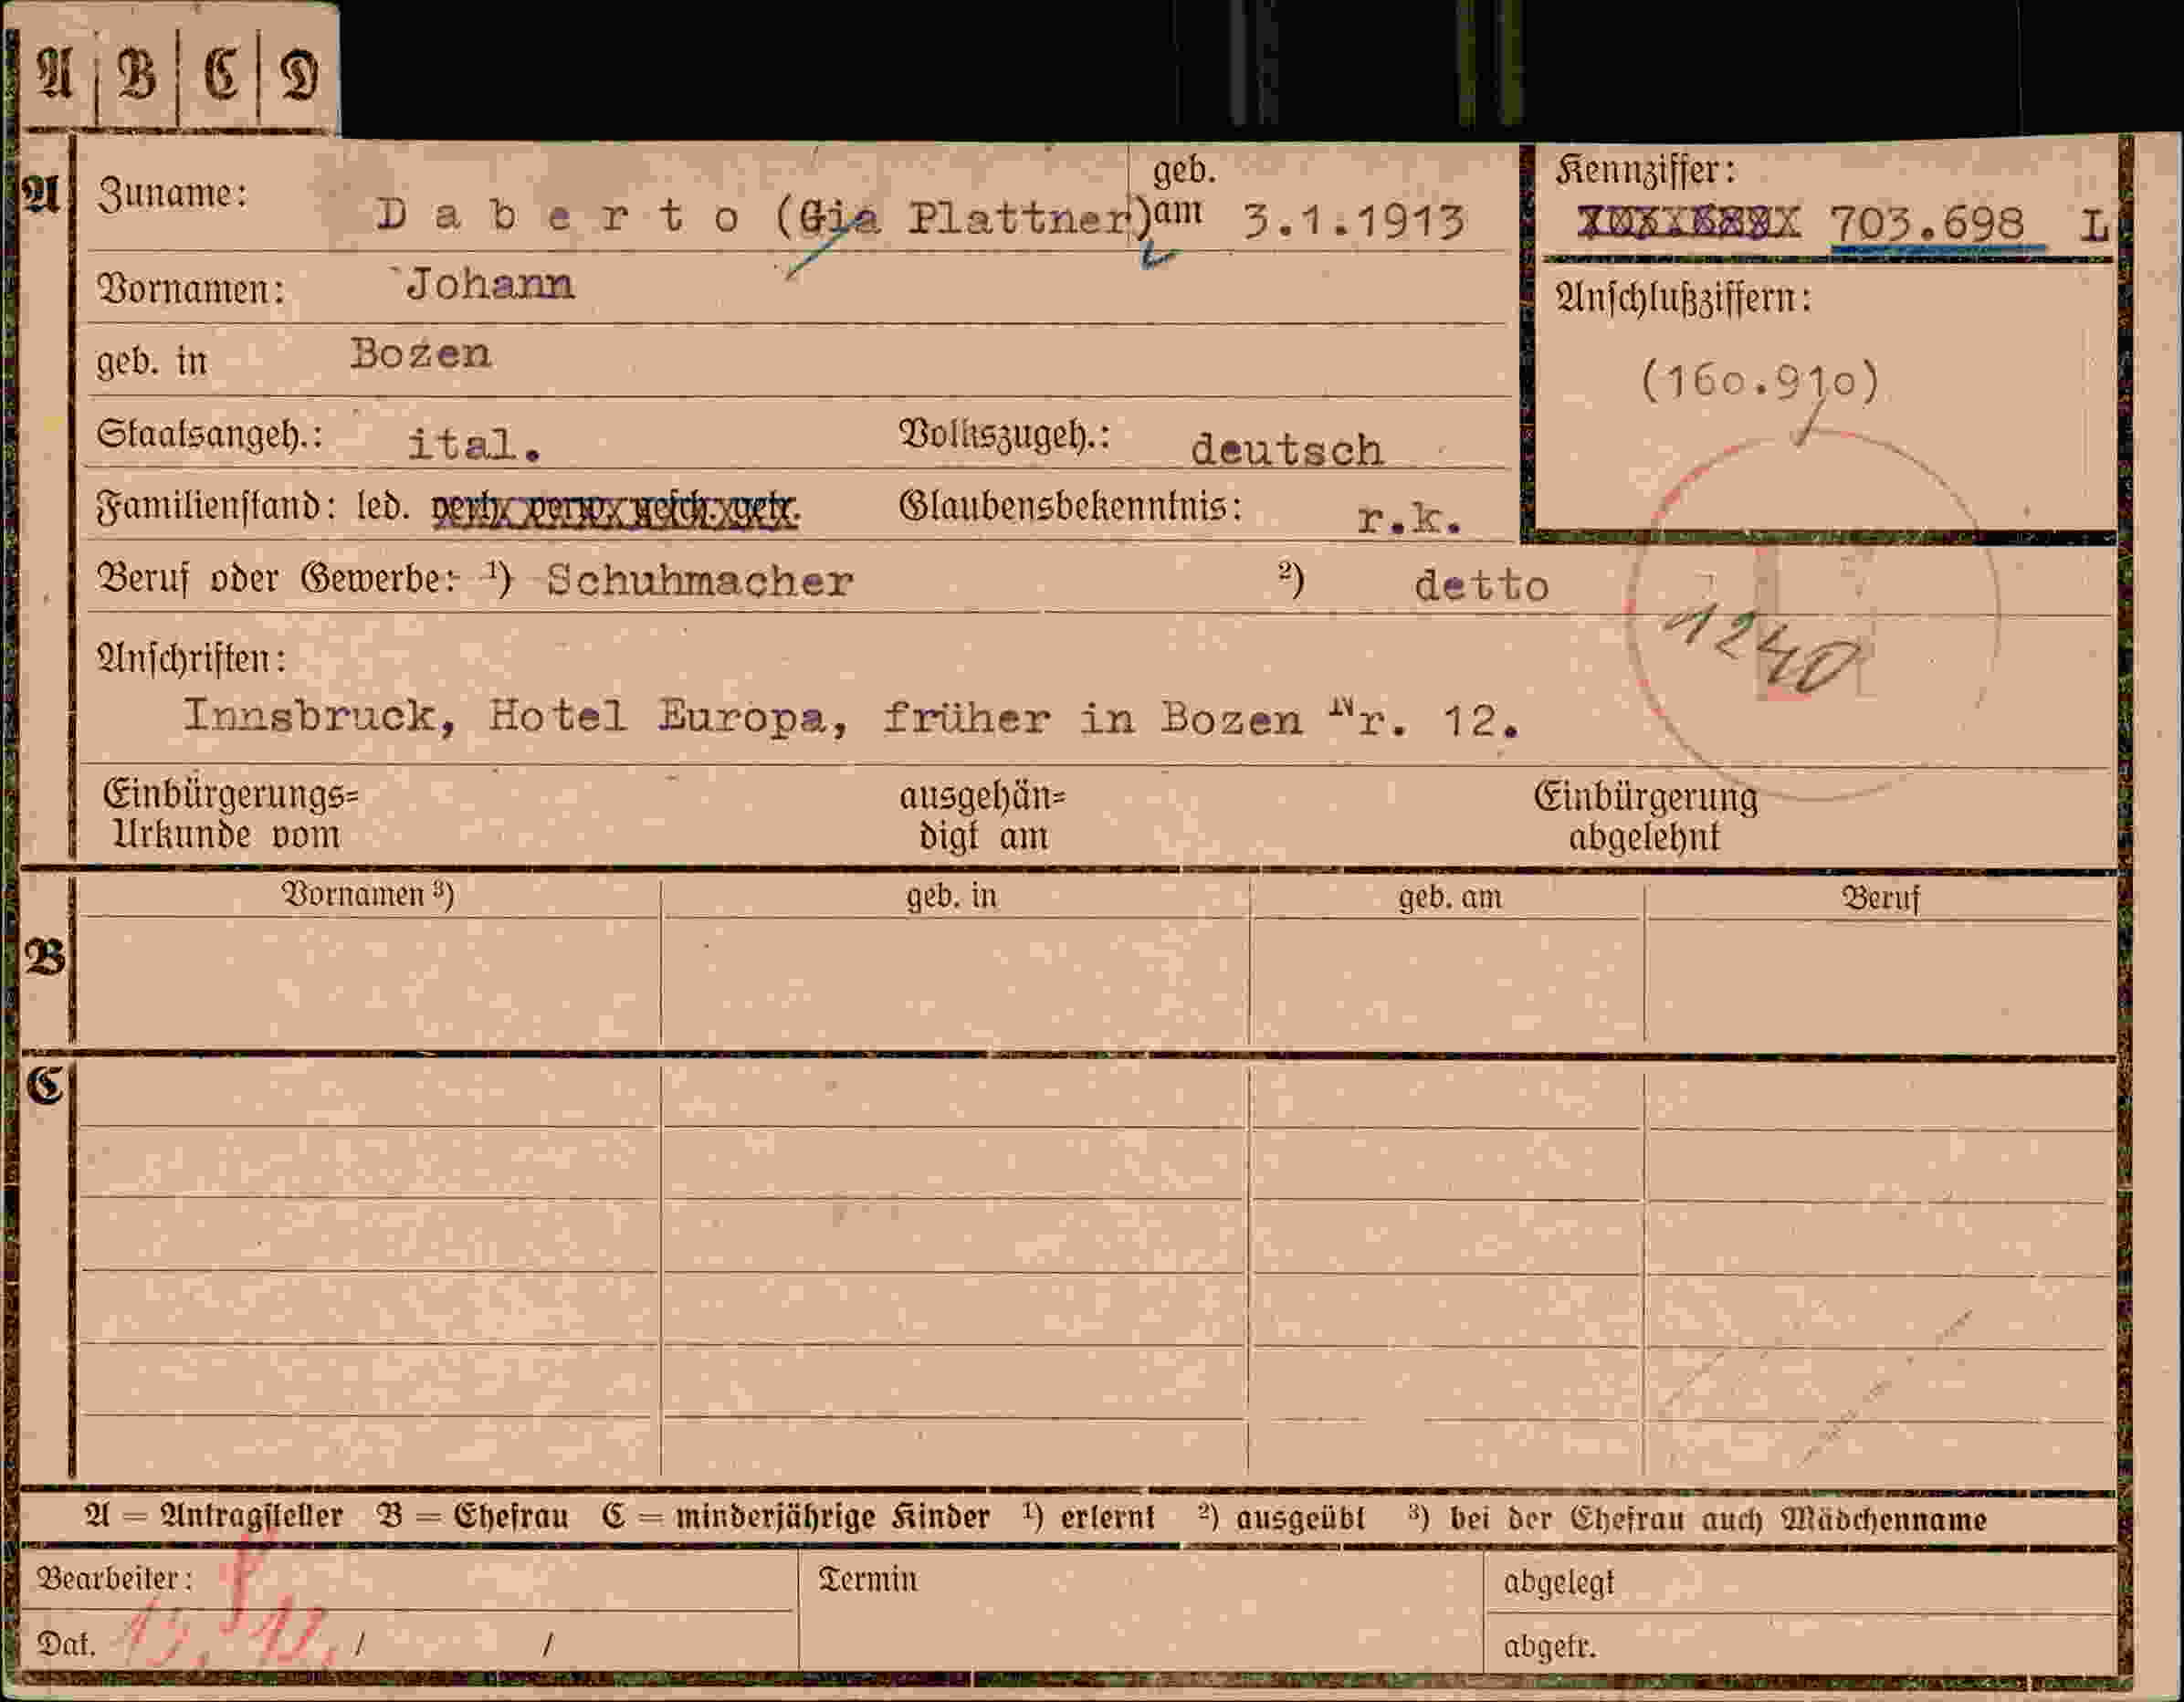 A B C D
A Zuname: Daberto (Gia Plattner) geb. am 3.1.1913
Kennziffer: 703.698 L
Vornamen: Johann
Anschlußziffern:
(160.910)
geb. in Bozen
Staatsangeh.: ital. Volkszugeh.: deutsch
Familienstand: led. verh. verw. gesch. getr. Glaubensbekenntnis: r.k.
Beruf oder Gewerbe: ¹) Schuhmacher ²) detto
1240
Anschriften:
Innsbruck, Hotel Europa, früher in Bozen Nr. 12.
Einbürgerungs=
Urkunde vom
ausgehän=
digt am
Einbürgerung
abgelehnt
Vornamen ³) geb. in geb. am Beruf
B
C
A = Antragsteller B = Ehefrau C = minderjährige Kinder ¹) erlernt ²) ausgeübt ³) bei der Ehefrau auch Mädchenname
Bearbeiter: Termin abgelegt
Dat. 13. 12. / / abgetr.